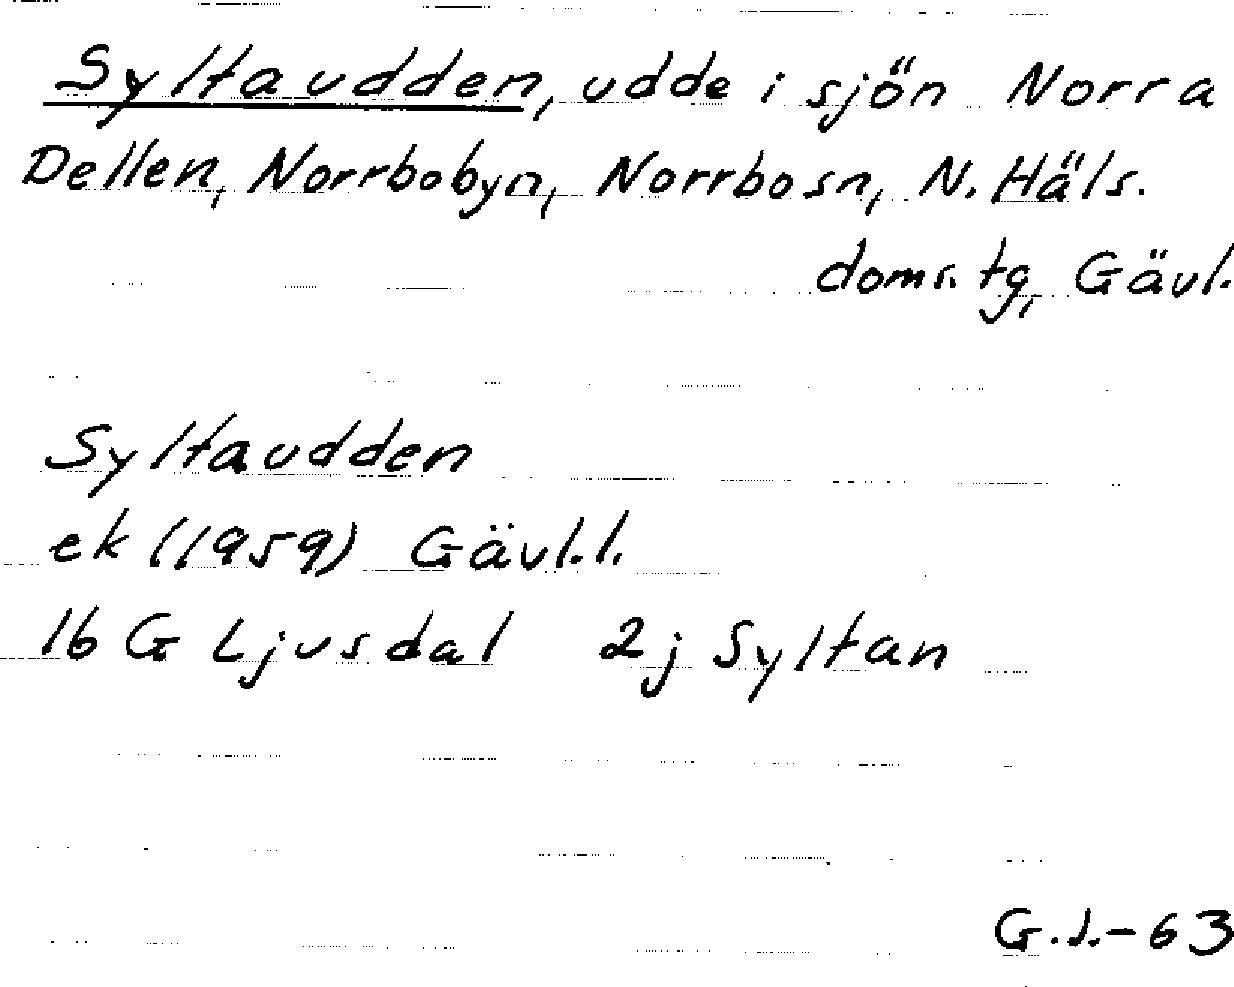 Syltaudden, udde i sjön Norra
Dellen, Norrbobyn, Norrbosn, N. Häls.
doms. tg, Gävl.
Syltaudden
ek (1959) Gävl. l.
16 G Ljusdal 2j Syltan
G.J.-63